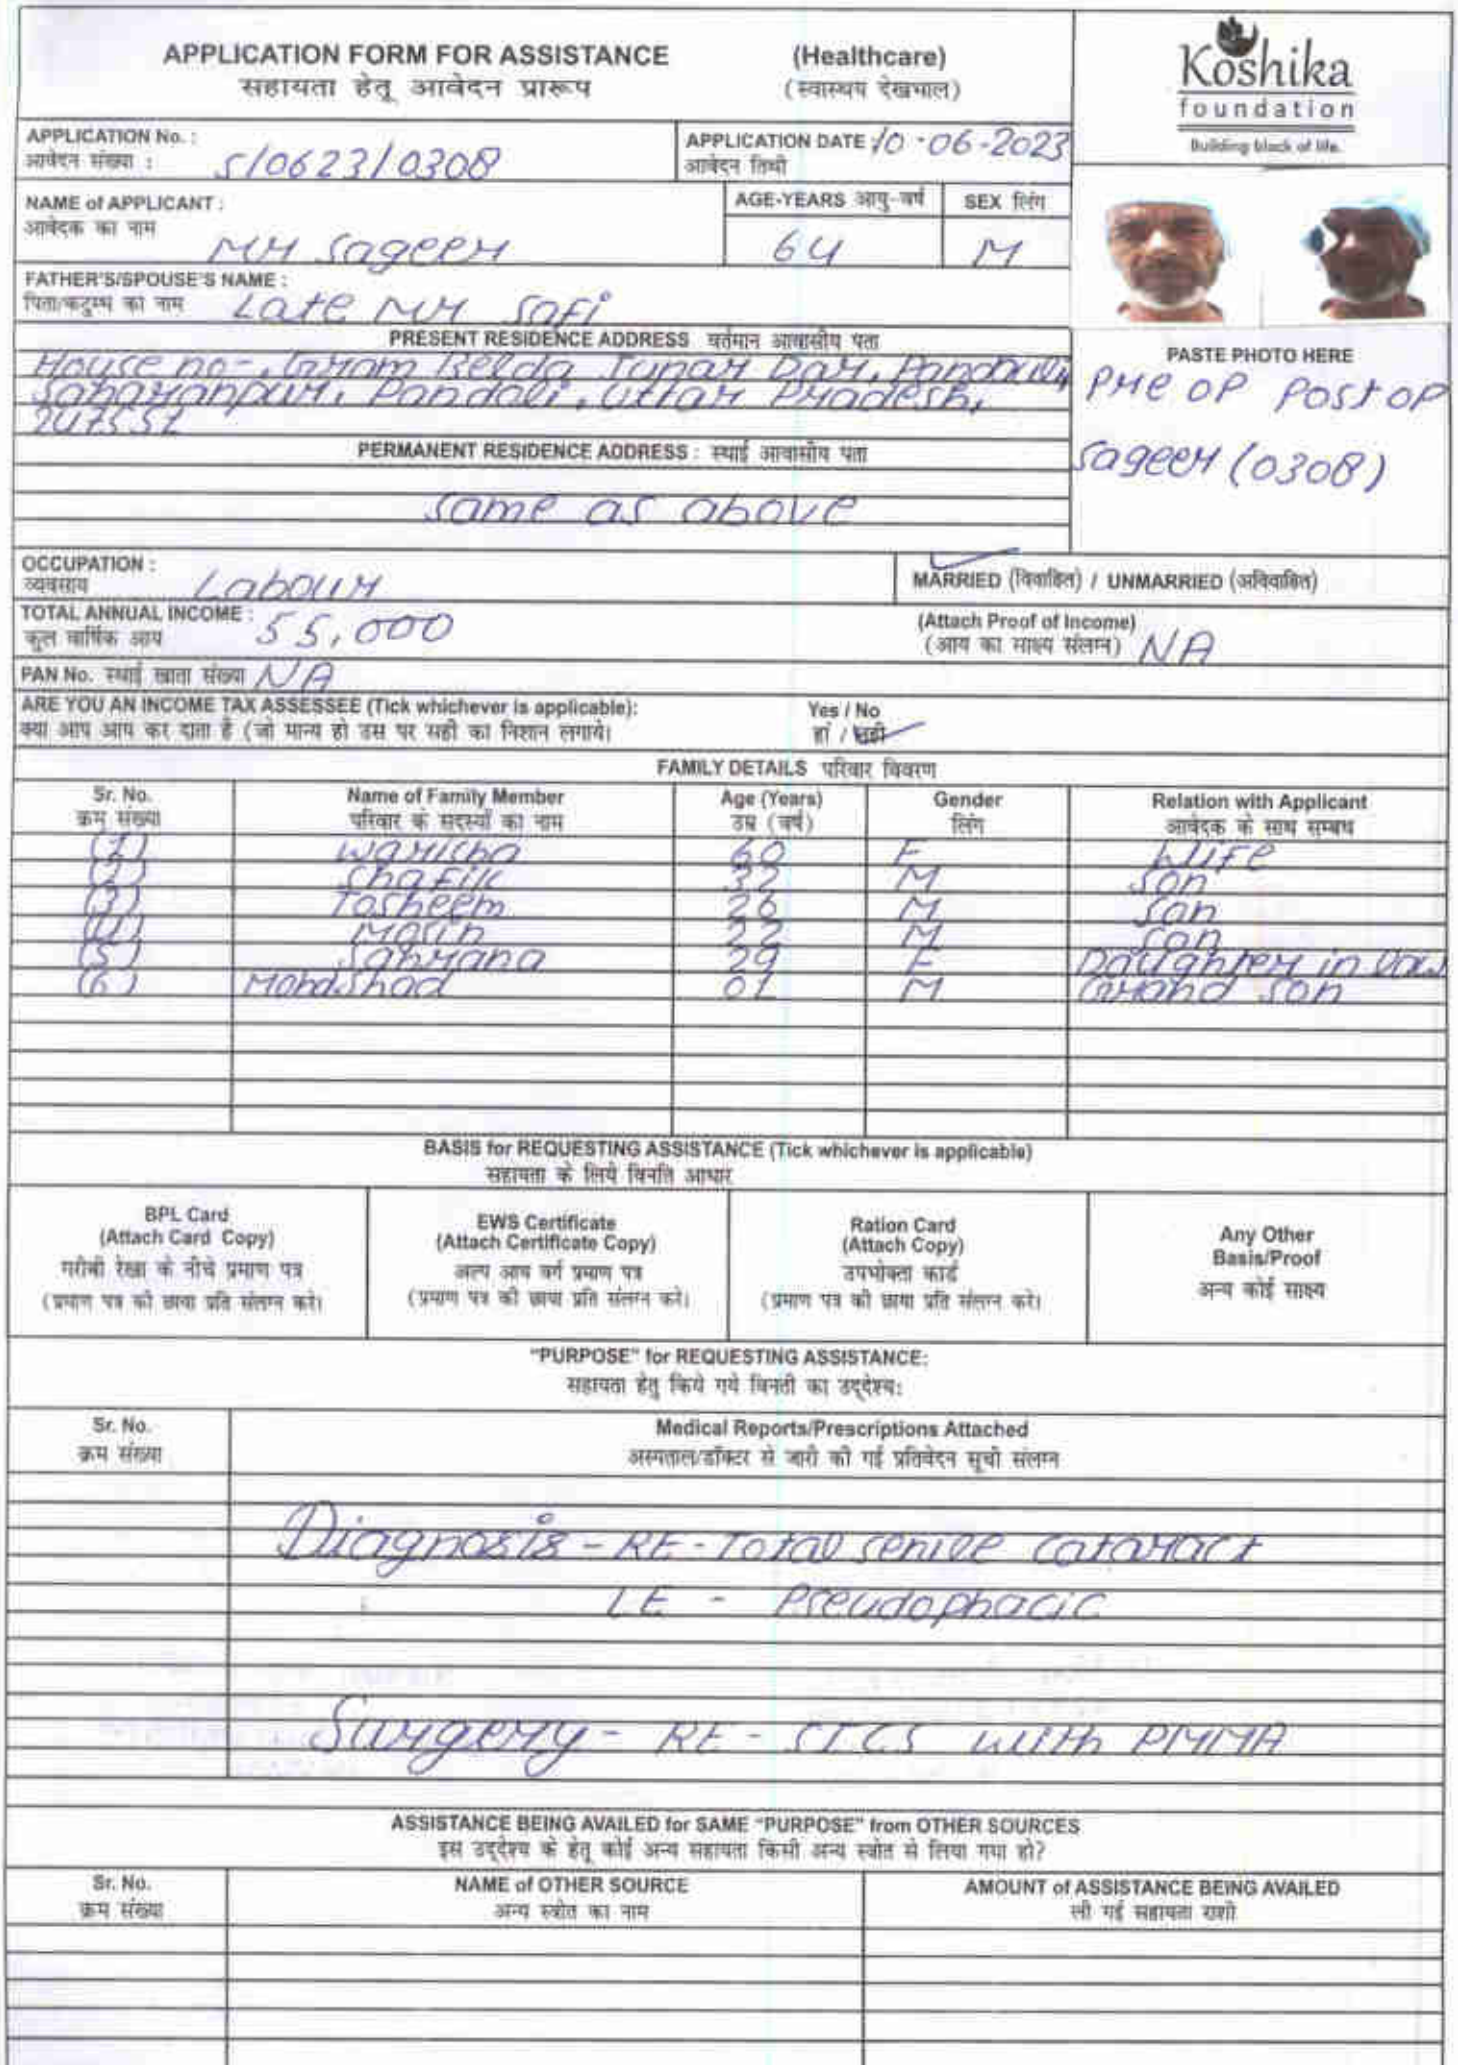 APPLICATION FORM FOR ASSISTANCE (Healthcare)
सहायता हेतू आवेदन प्रारूप (स्वास्थय देखभाल)
Koshika
foundation
Building block of life.
APPLICATION No. :
आवेदन संख्या : S/0623/0308
APPLICATION DATE 10-06-2023
आवेदन तिथी
NAME of APPLICANT :
आवेदक का नाम
Mr Sageer
AGE-YEARS आयु-वर्ष
64
SEX लिंग
M
FATHER'S/SPOUSE'S NAME :
पिता/कटुम्ब का नाम Late Mr Safi
PRESENT RESIDENCE ADDRESS वर्तमान आवासीय पता
House no-, Gram Belda Junar Dar,
Saharanpur, Pandoli, Uttar Pradesh,
247551
PASTE PHOTO HERE
Pre OP Post OP
Sageer (0308)
PERMANENT RESIDENCE ADDRESS : स्थाई आवासीय पता
same as above
OCCUPATION :
व्यवसाय Labour
MARRIED (विवाहित) / UNMARRIED (अविवाहित)
TOTAL ANNUAL INCOME :
कुल वार्षिक आय 55,000
(Attach Proof of Income)
(आय का साक्ष्य संलग्न) NA
PAN No. स्थाई खाता संख्या NA
ARE YOU AN INCOME TAX ASSESSEE (Tick whichever is applicable): Yes / No
क्या आप आय कर दाता है (जो मान्य हो उस पर सही का निशान लगाये। हां / नही
FAMILY DETAILS परिवार विवरण
Sr. No. Name of Family Member Age (Years) Gender Relation with Applicant
क्रम संख्या परिवार के सदस्यों का नाम उम्र (वर्ष) लिंग आवेदक के साथ सम्बध
(1) Warisha 60 F Wife
(2) Shafik 32 M Son
(3) Tosheem 26 M Son
(4) Mosin 22 M Son
(5) Sahrana 29 F Daughter in law
(6) Mohdshad 01 M Grand Son
BASIS for REQUESTING ASSISTANCE (Tick whichever is applicable)
सहायता के लिये विनति आधार
BPL Card
(Attach Card Copy)
गरीबी रेखा के नीचे प्रमाण पत्र
(प्रमाण पत्र की छाया प्रति संलग्न करे।
EWS Certificate
(Attach Certificate Copy)
अल्प आय वर्ग प्रमाण पत्र
(प्रमाण पत्र की छाया प्रति संलग्न करे।
Ration Card
(Attach Copy)
उपभोक्ता कार्ड
(प्रमाण पत्र की छाया प्रति संलग्न करे।
Any Other
Basis/Proof
अन्य कोई साक्ष्य
"PURPOSE" for REQUESTING ASSISTANCE:
सहायता हेतु किये गये विनती का उद्देश्य:
Sr. No. Medical Reports/Prescriptions Attached
क्रम संख्या अस्पताल/डॉक्टर से जारी की गई प्रतिवेदन सूची संलग्न
Diagnosis - RE - Total senile cataract
LE - Pseudophacic
Surgery - RE - SICS with PMMA
ASSISTANCE BEING AVAILED for SAME "PURPOSE" from OTHER SOURCES
इस उद्देश्य के हेतू कोई अन्य सहायता किसी अन्य स्त्रोत से लिया गया हो?
Sr. No. NAME of OTHER SOURCE AMOUNT of ASSISTANCE BEING AVAILED
क्रम संख्या अन्य स्त्रोत का नाम ली गई सहायता राशी